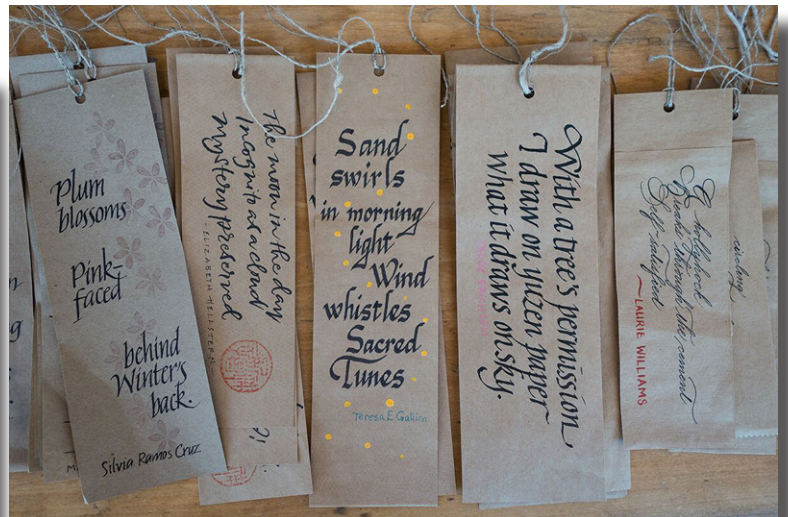 Plum
blossoms
Pink-
faced
behind
Winter's
back.
Silvia Ramos Cruz
The moon in the day
Incognito as a cloud
Mystery preserved
Sand
swirls
in morning
light
Wind
whistles
Sacred
Tunes
With a tree's permission
I draw on yuzen paper
what it draws on sky.
A hollyhock
Breaks through the cement
Self-satisfied
~LAURIE WILLIAMS
circling